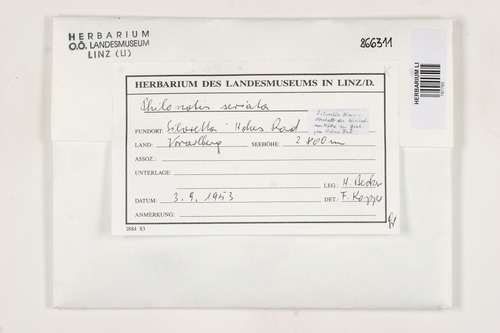 HERBARIUM
O.Ö. LANDESMUSEUM
LINZ (LI)
866311
HERBARIUM LI
HERBARIUM DES LANDESMUSEUMS IN LINZ/D.
Philonotis seriata
FUNDORT: Silvretta: Hohes Rad
LAND: Vorarlberg SEEHÖHE: 2800 m
ASSOZ.:
UNTERLAGE:
LEG.: H.
DATUM: 3. 9. 1953 DET.: F. Koppe
ANMERKUNG:
1884 83